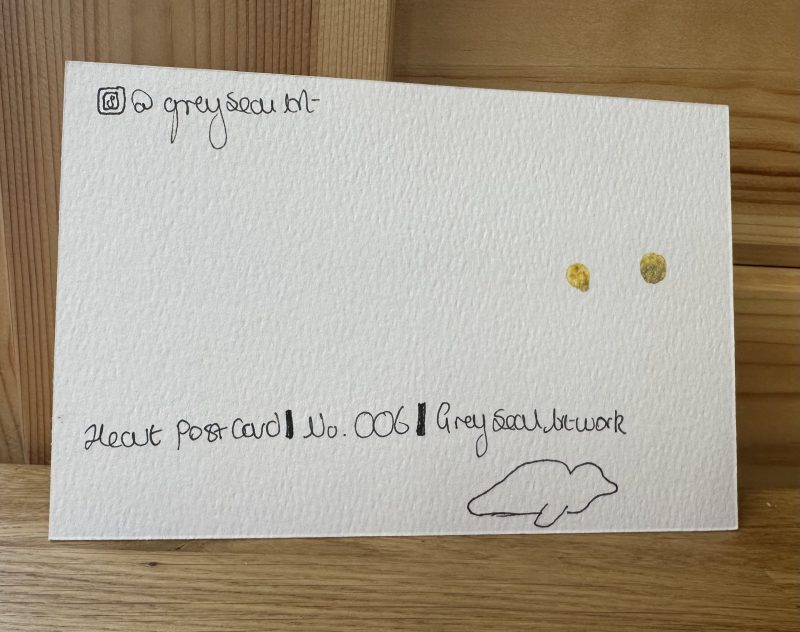 @greyseal.art
Heart Postcard | No. 006 | Greyseal.artwork